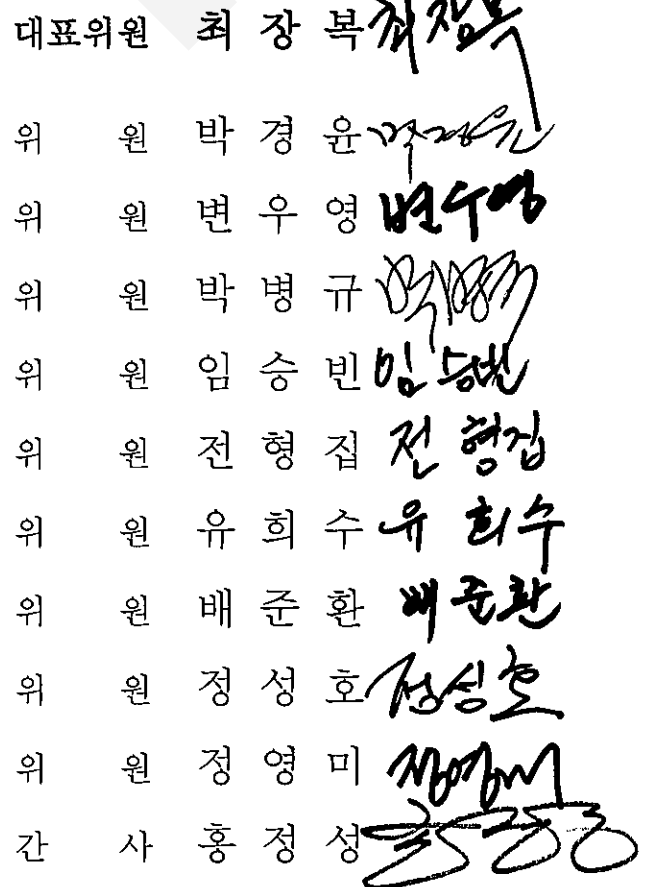 대표위원 최 장 복 최장복
위 원 박 경 윤 박경윤
위 원 변 우 영 변우영
위 원 박 병 규 박병규
위 원 임 승 빈 임승빈
위 원 전 형 집 전 형집
위 원 유 희 수 유 희수
위 원 배 준 환 배준환
위 원 정 성 호 정성호
위 원 정 영 미 정영미
간 사 홍 정 성